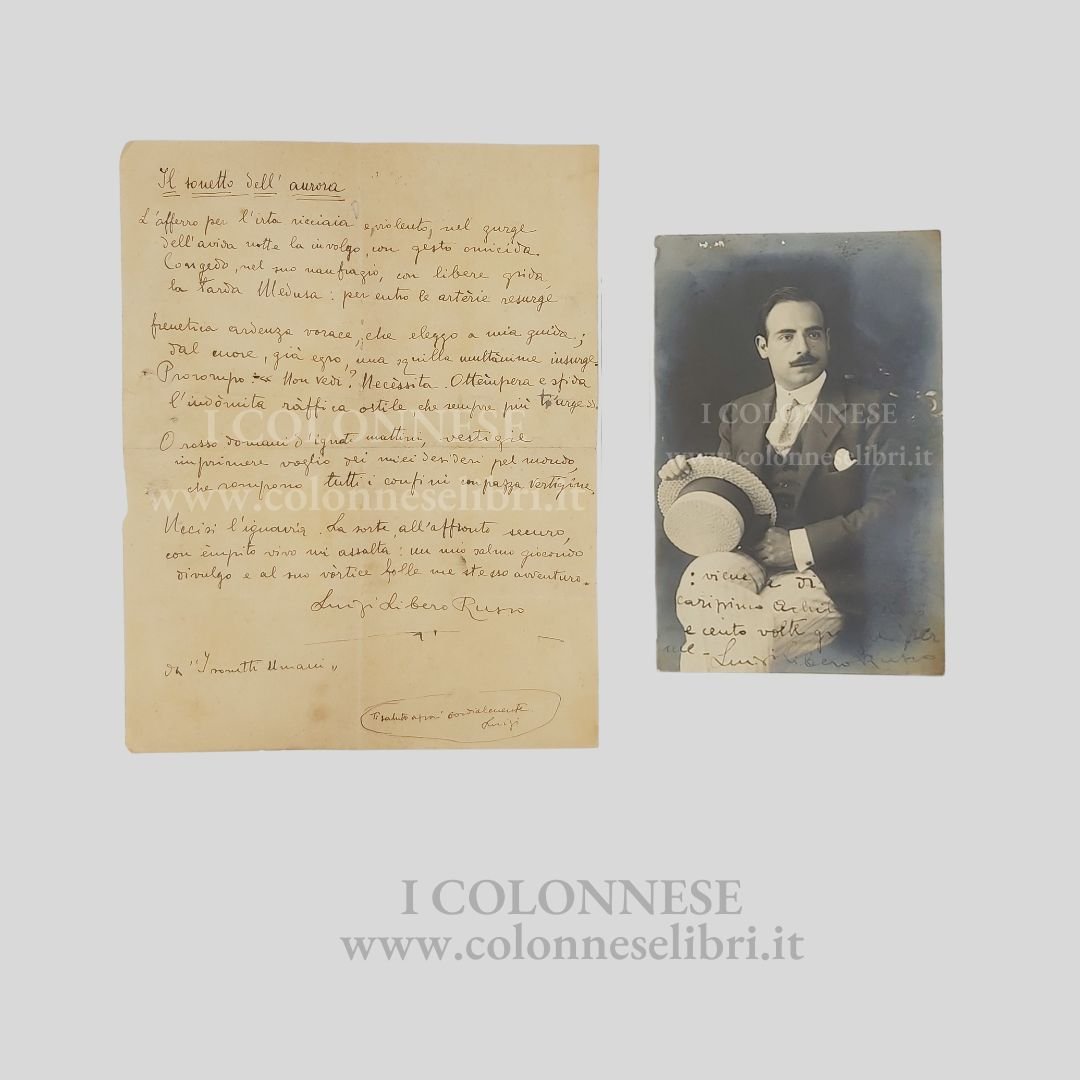 Il sonetto dell' aurora
L'afferro per l'irta ricciaia e, violento, nel gurge
dell'avida notte la involgo, con gesto omicida.
Congedo, nel suo naufragio, con libere grida,
la tarda Medusa: per entro le artèrie resurge
frenetica ardenza vorace, che eleggo a mia guida;
dal cuore, già egro, una squilla multànime insurge.
Prorompo: « Non vedi? Necèssita. Ottèmpera e sfida
l'indòmita ràffica ostile che sempre più t'urge ».
O rosso domani d'ignoti mattini, vestigie
imprimere voglio dei miei desideri pel mondo,
che rompono tutti i confini con pazza vertigine.
Uccisi l'ignavia. La sorte, all'affronto securo,
con èmpito vivo mi assalta: un mio salmo giocondo
divulgo e al suo vòrtice folle me stesso avventuro.
Luigi Libero Russo
da "I sonetti Umani"
Ti saluto assai cordialmente
Luigi
: viene a di
carissimo
e cento volte per
me -
Luigi Libero Russo
I COLONNESE
www.colonneselibri.it
I COLONNESE
www.colonneselibri.it
I COLONNESE
www.colonneselibri.it